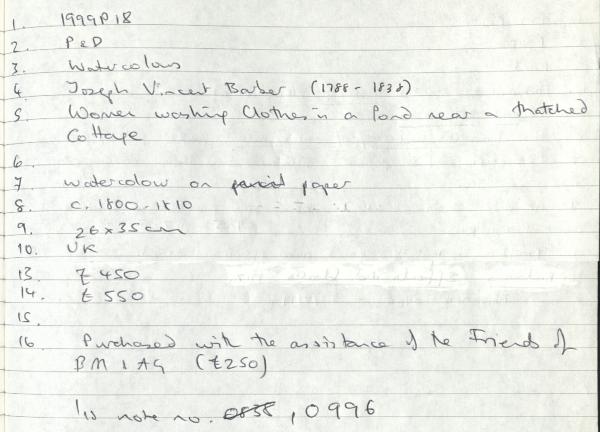 1. 1999P18
2. P&D
3. Watercolours
4 Joseph Vincent Barber (1788 - 1838)
5. Women washing Clothes in a Pond near a thatched
Cottage
6.
7 watercolour on paper
8. c. 1800-1810
9. 26 x 35cm
10. UK
13. £450
14. £550
15.
16. Purchased with the assistance of the Friends of
BM & AG (£250)
note no. 0838, 0996